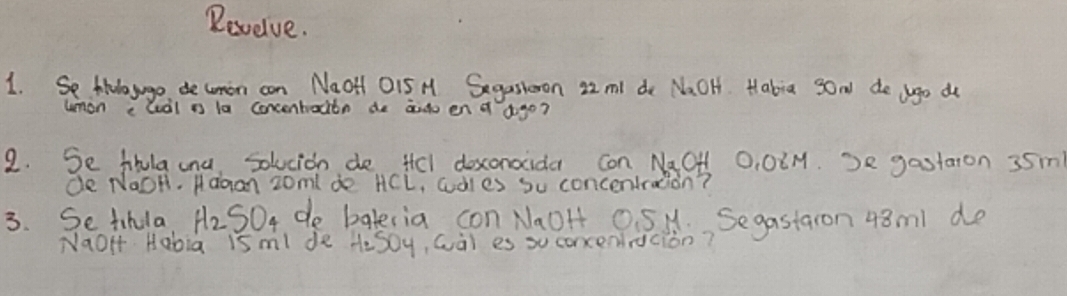 Resuelve.
1. Se titula jugo de limón con NaOH 015 M Se gastaron 22 ml de NaOH. Habia 30 ml de jugo de
limon ¿ Cuál es la concentración de ácido en el jugo?
2. Se titula una solución de HCl desconocida con NaOH 0,08M. Se gastaron 35ml
de NaOH. Habian 20ml de HCL, cuál es su concentración?
3. Se titula H2SO4 de bateria con NaOH 0,5M. Se gastaron 48ml de
NaOH Habia 15ml de H2SO4, cuál es su concentración?